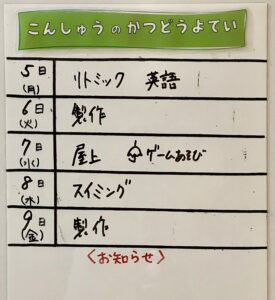 こんしゅうのかつどうよてい
5日 リトミック 英語
(月)
6日 製作
(火)
7日 屋上 ゲームあそび
(水)
8日 スイミング
(木)
9日 製作
(金)
〈お知らせ〉